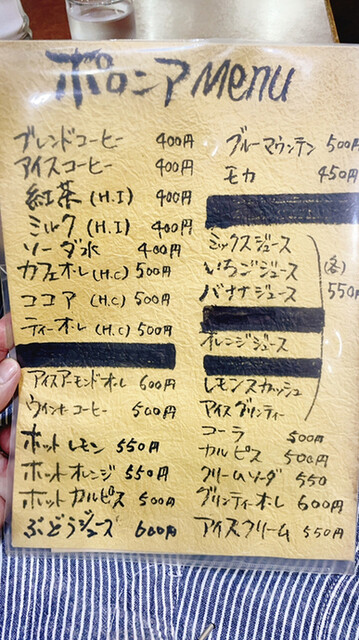 ポロニア Menu
ブレンドコーヒー 400円
アイスコーヒー 400円
紅茶 (H.I) 400円
ミルク (H.I) 400円
ソーダ水 400円
カフェオレ (H.C) 500円
ココア (H.C) 500円
ティーオレ (H.C) 500円
アイスアーモンドオーレ 600円
ウインナーコーヒー 500円
ホットレモン 550円
ホットオレンジ 550円
ホットカルピス 500円
ぶどうジュース 600円
ブルーマウンテン 500円
モカ 450円
ミックスジュース
いちごジュース
バナナジュース
(各) 550円
オレンジジュース
レモンスカッシュ
アイスグリンティー
コーラ 500円
カルピス 500円
クリームソーダ 550
グリンティーオレ 600円
アイスクリーム 550円